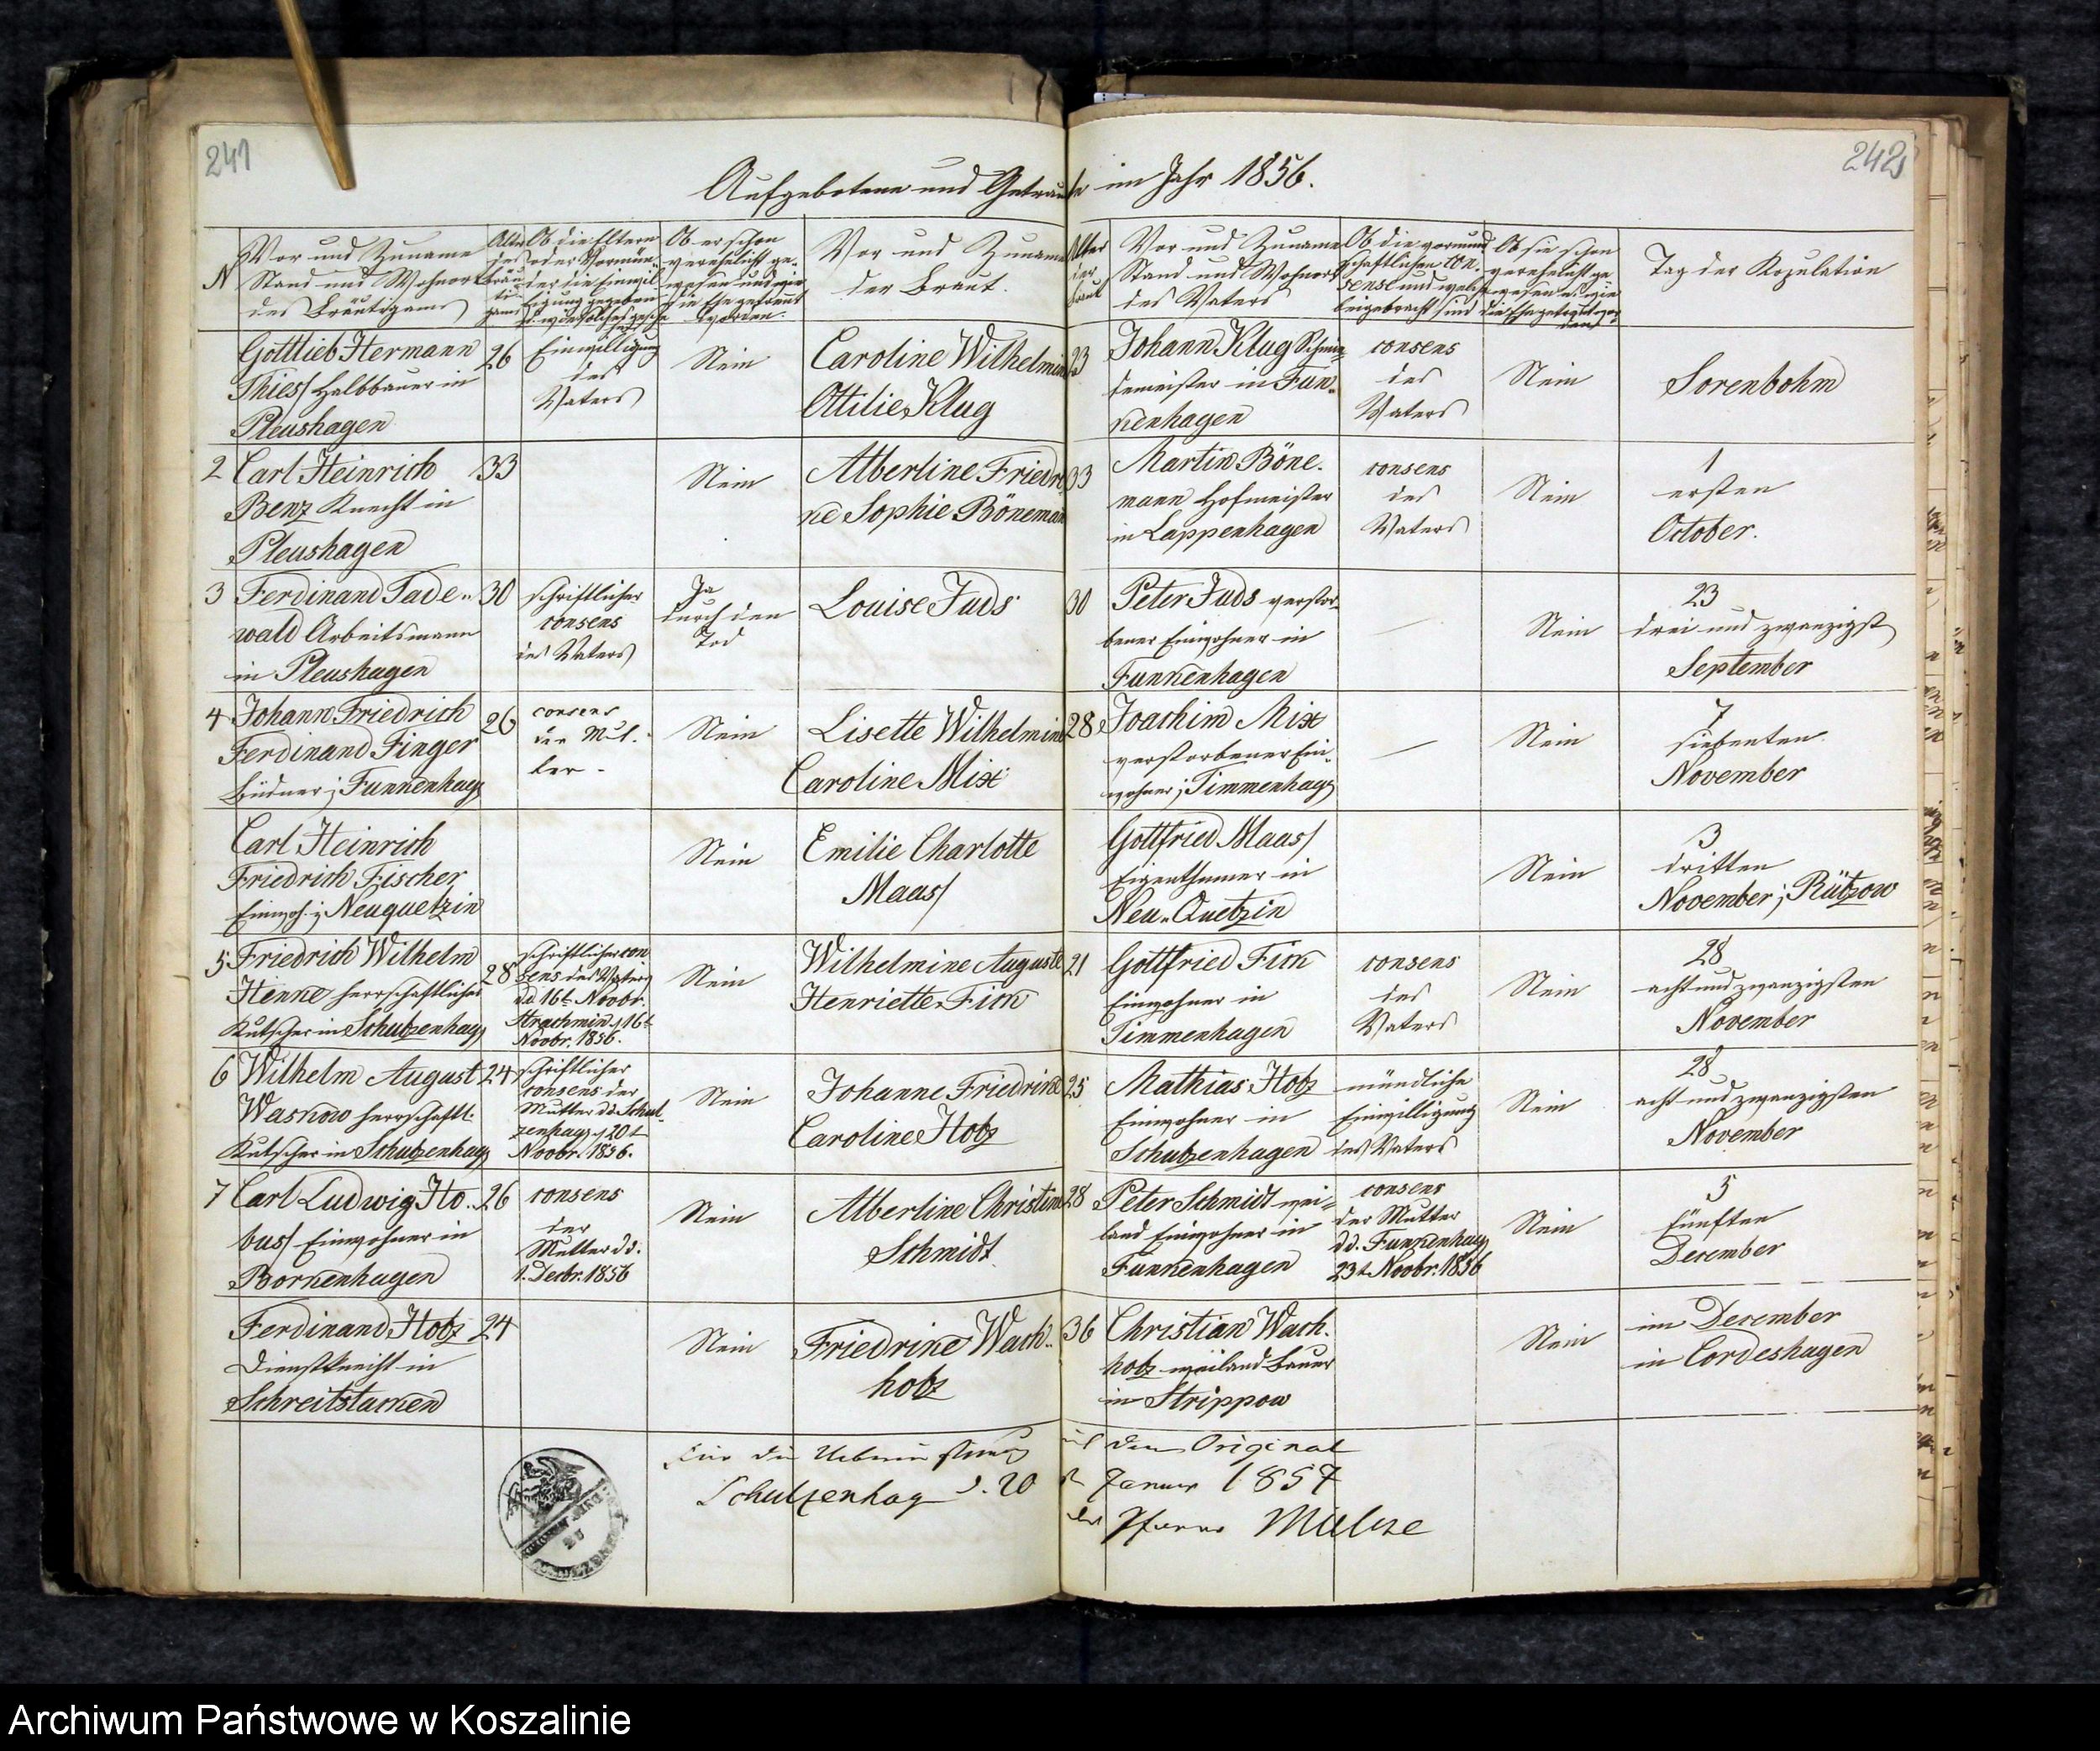 241
242
Aufgebotene und Getraute im Jahr 1856.
N
Vor und Zuname
Stand und Wohnort
des Bräutigams
Alter
des
Bräu
ti-
gams
Ob die Eltern
oder Vormün-
der die Einwil
ligung gegeben
u. wie solches gesche
hen
Ob er schon
verehelicht ge-
wesen und wie
die Ehe getrennt
worden.
Vor und Zuname
der Braut.
Alter
der
Braut
Vor und Zuname
Stand und Wohnort
des Vaters
Ob die vormund
schaftlichen Con-
sense und welche
beigebracht sind
Ob sie schon
verehelicht ge
wesen u. wie
die Ehe getrennt wor
den
Tag der Kopulation
Gottlieb Hermann
Thiess Halbbauer in
Pleushagen
26
Einwilligung
des
Vaters
Nein
Caroline Wilhelmine
Ottilie Klug
23
Johann Klug Schmie
demeister in Fun-
kenhagen
consens
des
Vaters
Nein
Sorenbohm
2
Carl Heinrich
Benz Knecht in
Pleushagen
33
Nein
Alberline Friedri
ke Sophie Böneman
33
Martin Böne-
mann Hofmeister
in Lappenhagen
consens
des
Vaters
Nein
1
ersten
October.
3
Ferdinand Tade-
wald Arbeitsmann
in Pleushagen
30
schriftlicher
consens
des Vaters
Ja
durch den
Tod
Louise Juds
30
Peter Juds verstor-
bener Einwohner in
Funkenhagen
—
Nein
23
drei und zwanzigst
September
4
Johann Friedrich
Ferdinand Finger
Büdner i Funkenhag
26
consens
der Mut-
ter -
Nein
Lisette Wilhelmine
Caroline Mix
28
Joachim Mix
verstorbener Ein-
wohner i Timmenhag
—
Nein
7
siebenten
November
Carl Heinrich
Friedrich Fischer
Einwoh. i Neuquetzin
Nein
Emilie Charlotte
Maass
Gottfried Maass
Eigenthümer in
Neu-Quetzin
Nein
3
dritten
November i Rützow
5
Friedrich Wilhelm
Henke herrschaftlicher
Kutscher in Schulzenhag
28
schriftlicher con
sens des Vaters
dd 16t Novbr.
Strachmin 16t
Novbr. 1856.
Nein
Wilhelmine Auguste
Henriette Fick
21
Gottfried Fick
Einwohner in
Timmenhagen
consens
des
Vaters
Nein
28
acht und zwanzigsten
November
6
Wilhelm August
Waskow herrschaftl.
Kutscher in Schulzenhag
24
schriftlicher
consens der
Mutter dd Schul-
zenhag 20t
Novbr. 1856.
Nein
Johanne Friedrike
Caroline Holz
25
Mathias Holz
Einwohner in
Schulzenhagen
mündliche
Einwilligung
des Vaters
Nein
28
acht und zwanzigsten
November
7
Carl Ludwig Ho-
bus Einwohner in
Borkenhagen
26
consens
der
Mutter dd.
1. Decbr. 1856
Nein
Alberline Christine
Schmidt
28
Peter Schmidt wei-
land Einwohner in
Funkenhagen
consens
der Mutter
dd. Funkenhag
23t Novbr. 1856
Nein
5
fünften
December
Ferdinand Holz
Dienstknecht in
Schreitstacken
24
Nein
Friedrike Wach-
holz
36
Christian Wach-
holz weiland Bauer
in Strippow
Nein
im December
in Cordeshagen
Für die Uebereinstimmung mit dem Original
Schulzenhag d. 20 t Januar 1857
der Pfarrer
Archiwum Państwowe w Koszalinie